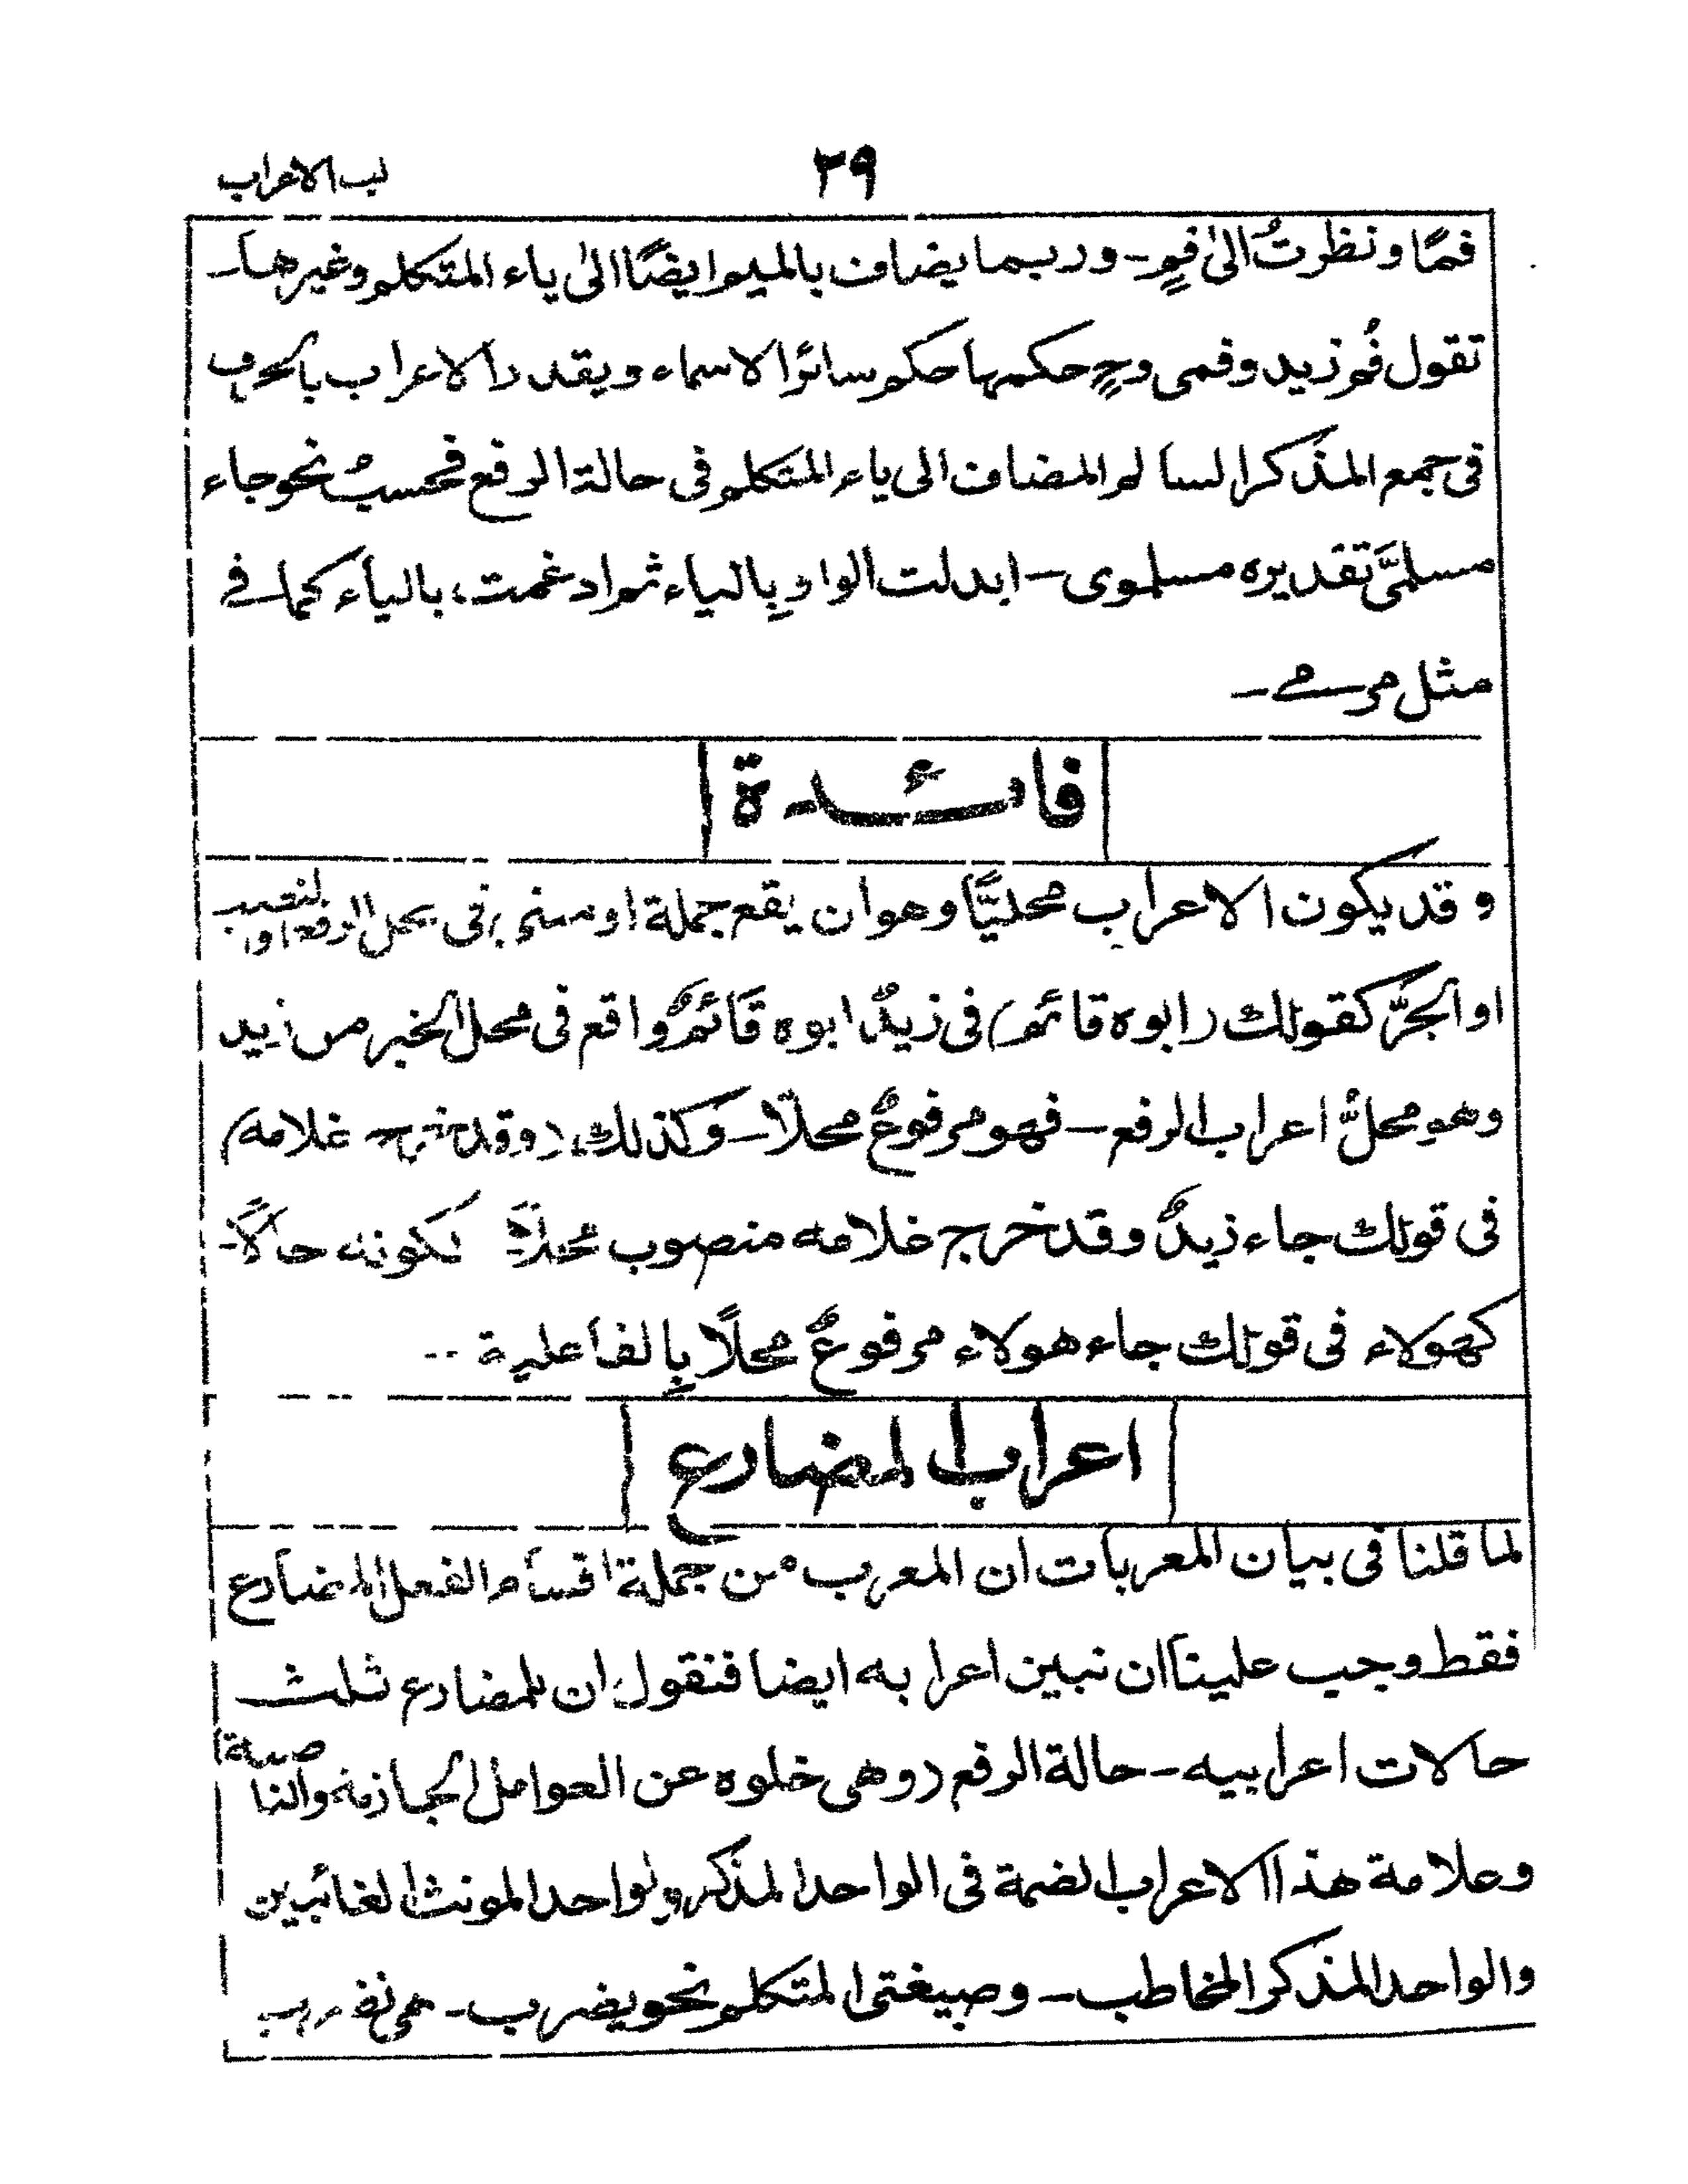 لب الاعراب
۲۹
فمًا ونظرتُ الیٰ فمٍ۔ وربما یضاف بالمیم ایضًا الیٰ یاء المتکلم وغیرھا۔
تقول فُم زید وفمی وحٍ حکمہا حکم سائر الاسماء ویقدر الاعراب بالحرف
فی جمع المذکر السالم المضاف الی یاء المتکلم فی حالة الرفع فحسبُ نحو جاء
مسلمیَّ تقدیرہ مسلموی۔ ابدلت الواو بِالیاء ثم ادغمت، بالیاء کما فے
مثل مرمے۔
فائدة
وقد یکون الاعراب محلیًّا وھو ان یقع جملة او فی محل الرفع او النصب
او الجرّ کقولك (ابوہ قائم) فی زیدٌ ابوہ قائمٌ واقع فی محل الخبر من زید
وھو محلُّ اعراب الرفع۔ فھو مرفوعٌ محلّا۔ وکذلك (وقد خرج غلامہ)
فی قولك جاء زیدٌ وقد خرج غلامہ منصوب محلاً لکونہ حالًا۔
کھٰولاء فی قولك جاء ھولاء مرفوعٌ محلًا بِالفاعلیة۔۔
اعراب المضارع
لما قلنا فی بیان المعربات ان المعرب من جملة اقسام الفعل المضارع
فقط وجب علینا ان نبین اعرابہ ایضا فنقول ان للمضارع ثلٰث
حالات اعرابیہ۔ حالة الرفع (وھی خلوہ عن العوامل الجازمة والناصبة)
وعلامة ھذا الاعراب الضمة فی الواحد المذکر والواحد المونث الغائبین
والواحد المذکر المخاطب۔ وصیغتی المتکلم نحو یضرب۔ ھی تضرب